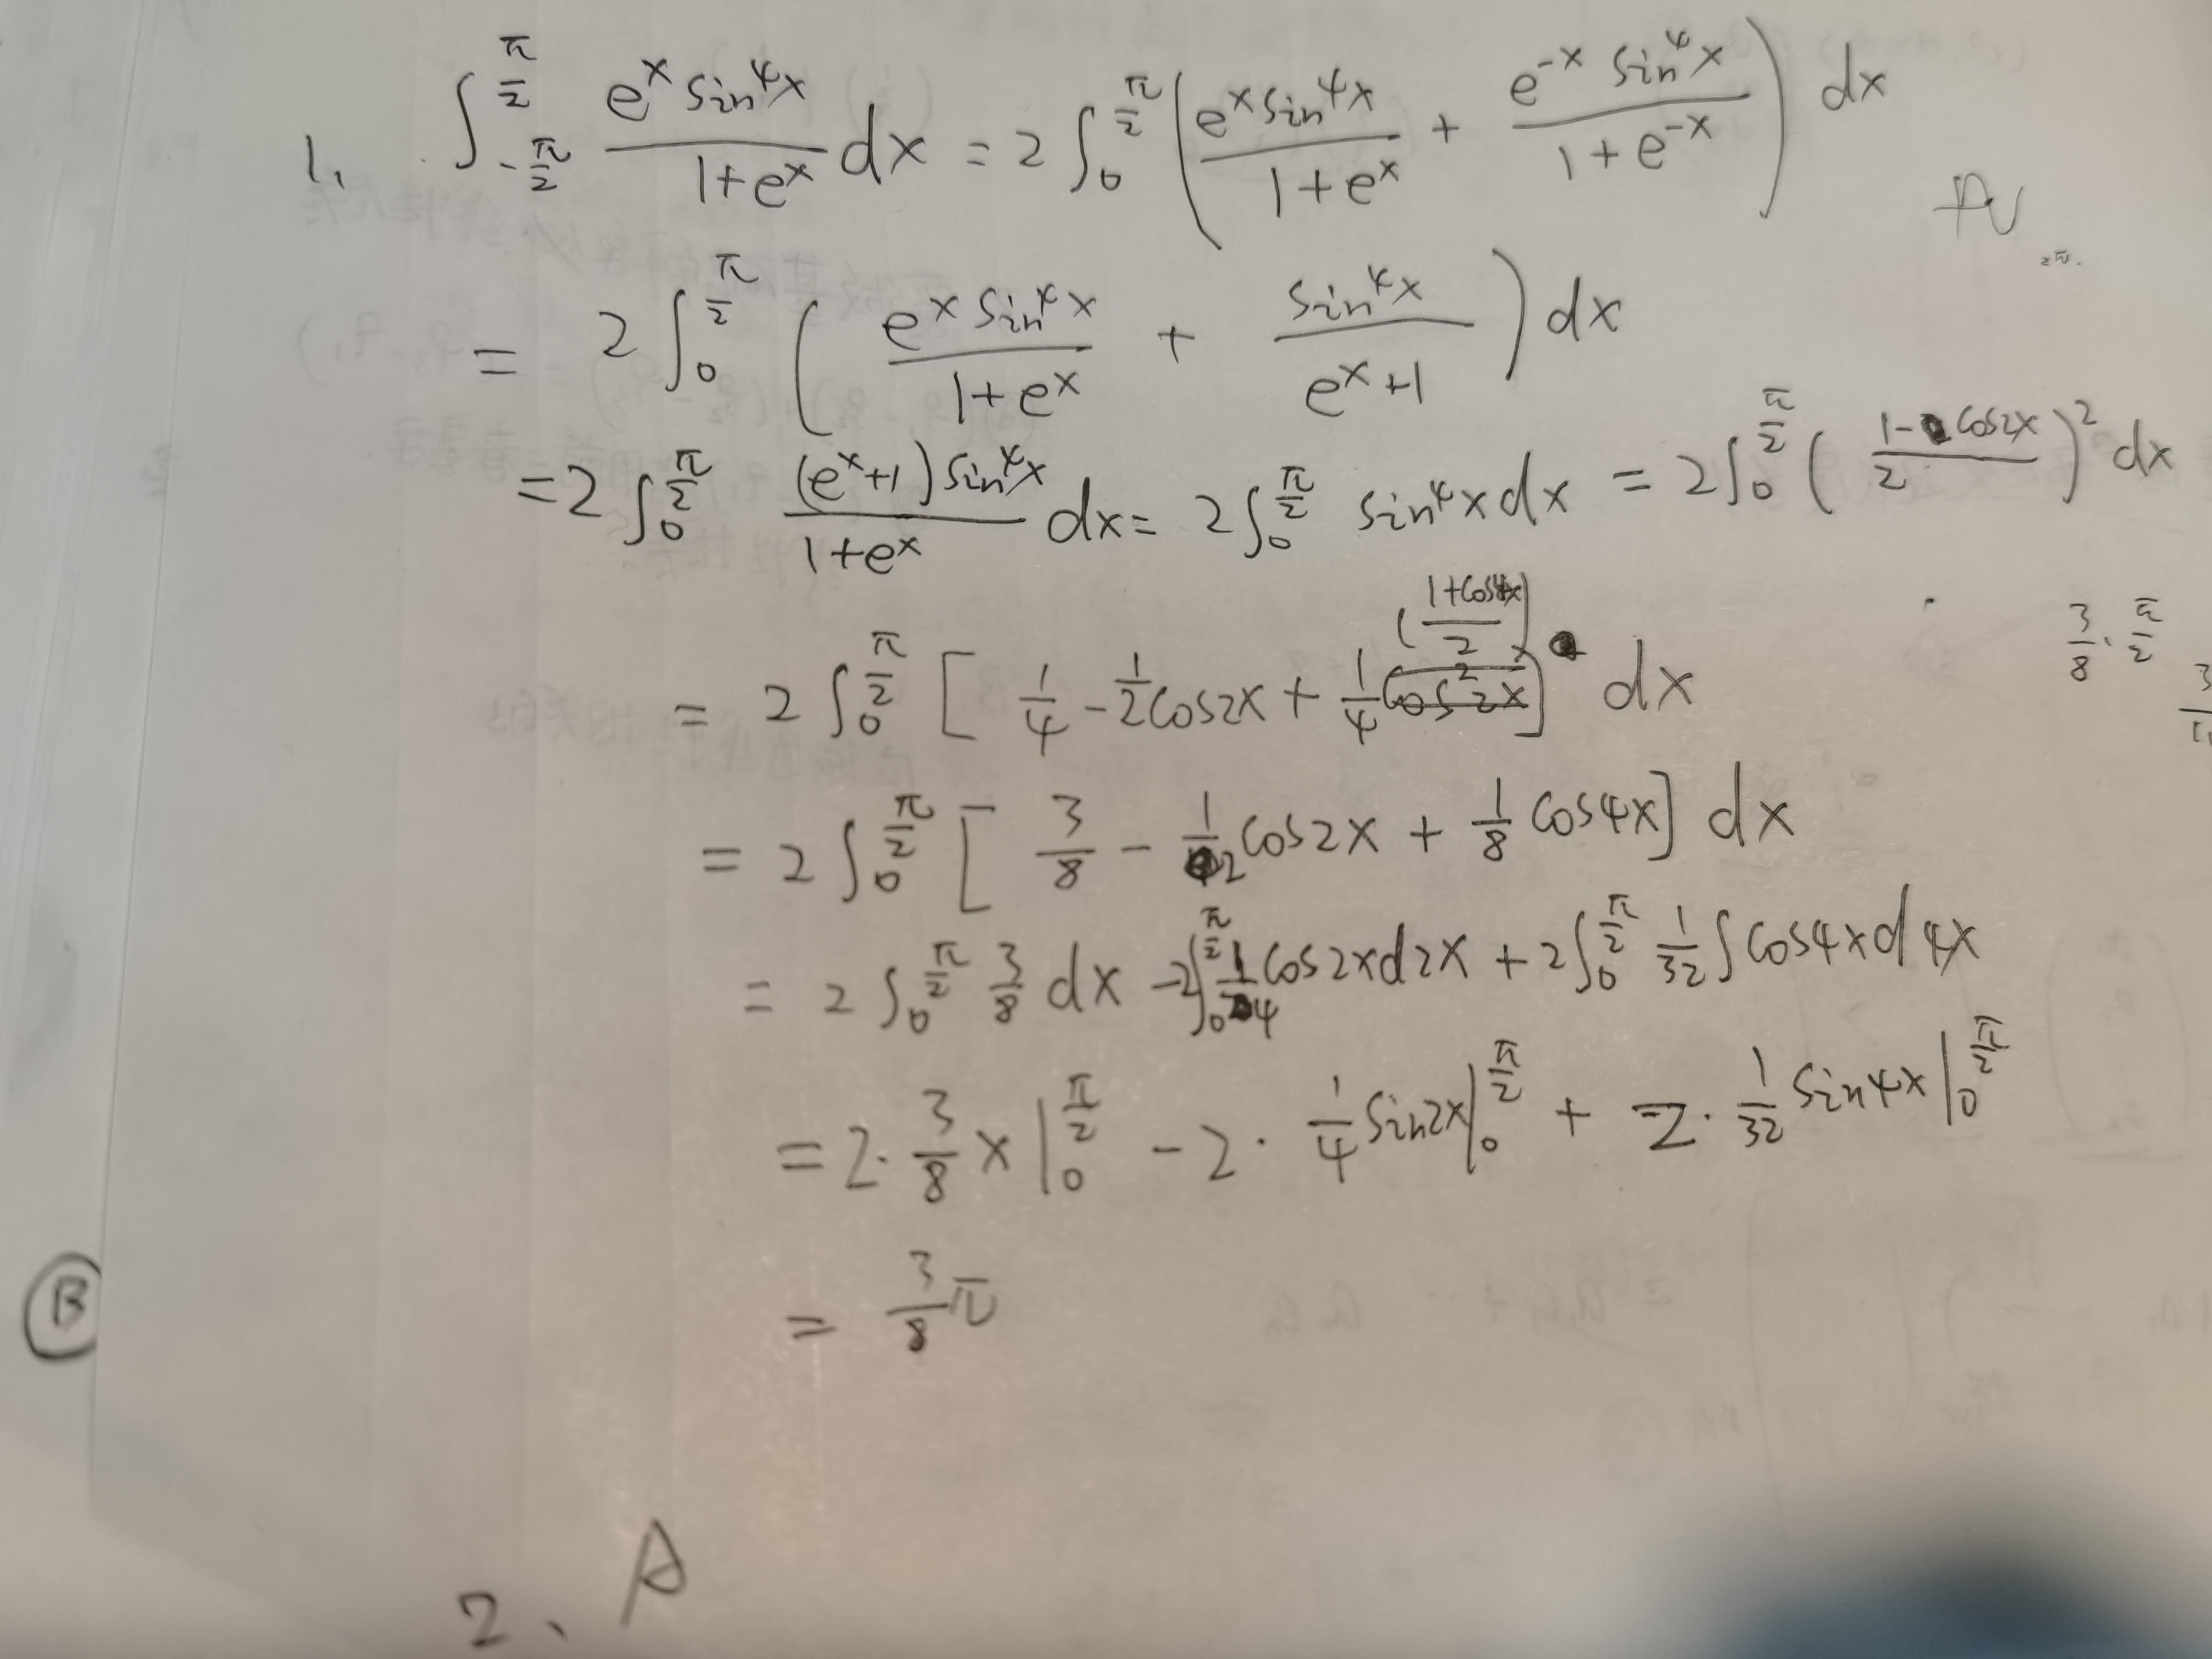 1. ∫_{-π/2}^{π/2} \frac{e^x sin^4x}{1+e^x} dx = 2∫_0^{π/2} ( \frac{e^x sin^4x}{1+e^x} + \frac{e^{-x} sin^4x}{1+e^{-x}} ) dx
= 2∫_0^{π/2} ( \frac{e^x sin^4x}{1+e^x} + \frac{sin^4x}{e^x+1} ) dx
= 2∫_0^{π/2} \frac{(e^x+1) sin^4x}{1+e^x} dx = 2∫_0^{π/2} sin^4x dx = 2∫_0^{π/2} ( \frac{1-cos2x}{2} )^2 dx
= 2∫_0^{π/2} [ \frac{1}{4} - \frac{1}{2}cos2x + \frac{1}{4}(\frac{1+cos4x}{2}) ] dx
\frac{3}{8}·\frac{π}{2}
= 2∫_0^{π/2} [ \frac{3}{8} - \frac{1}{2}cos2x + \frac{1}{8}cos4x ] dx
= 2∫_0^{π/2} \frac{3}{8} dx - 2∫_0^{π/2} \frac{1}{4}cos2xd2x + 2∫_0^{π/2} \frac{1}{32}∫cos4xd4x
= 2·\frac{3}{8}x|_0^{π/2} - 2·\frac{1}{4}sin2x|_0^{π/2} + 2·\frac{1}{32}sin4x|_0^{π/2}
= \frac{3}{8}π
B
2. A